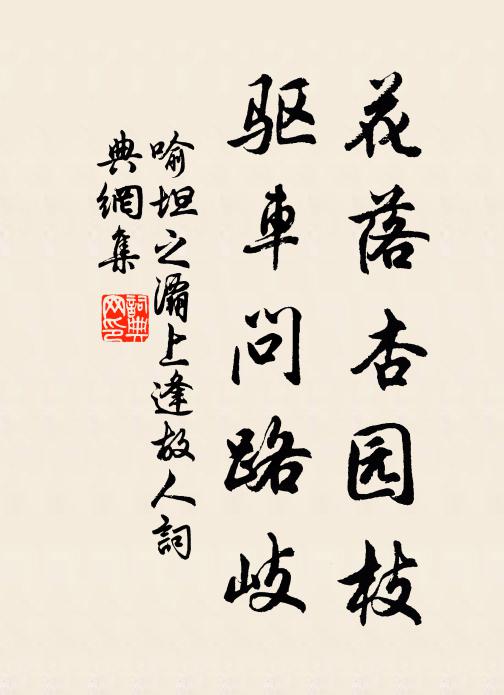 花落杏园枝
驱車问路岐
喻坦之灞上逢故人詞
典網集
詞典网印